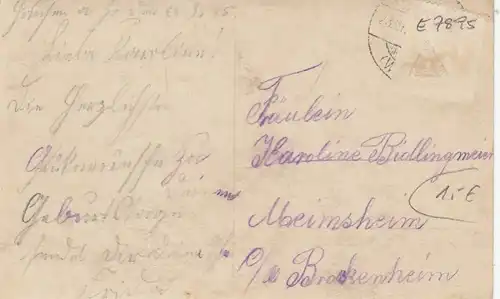 Liebe Karoline!
Die Herzlichsten
Glükwünsche zu
Deinem
Geburtstage
sendet dir deine
E7895
Fräulein
Karoline Bidlingmeier
15 €
Meimsheim
Brakenheim